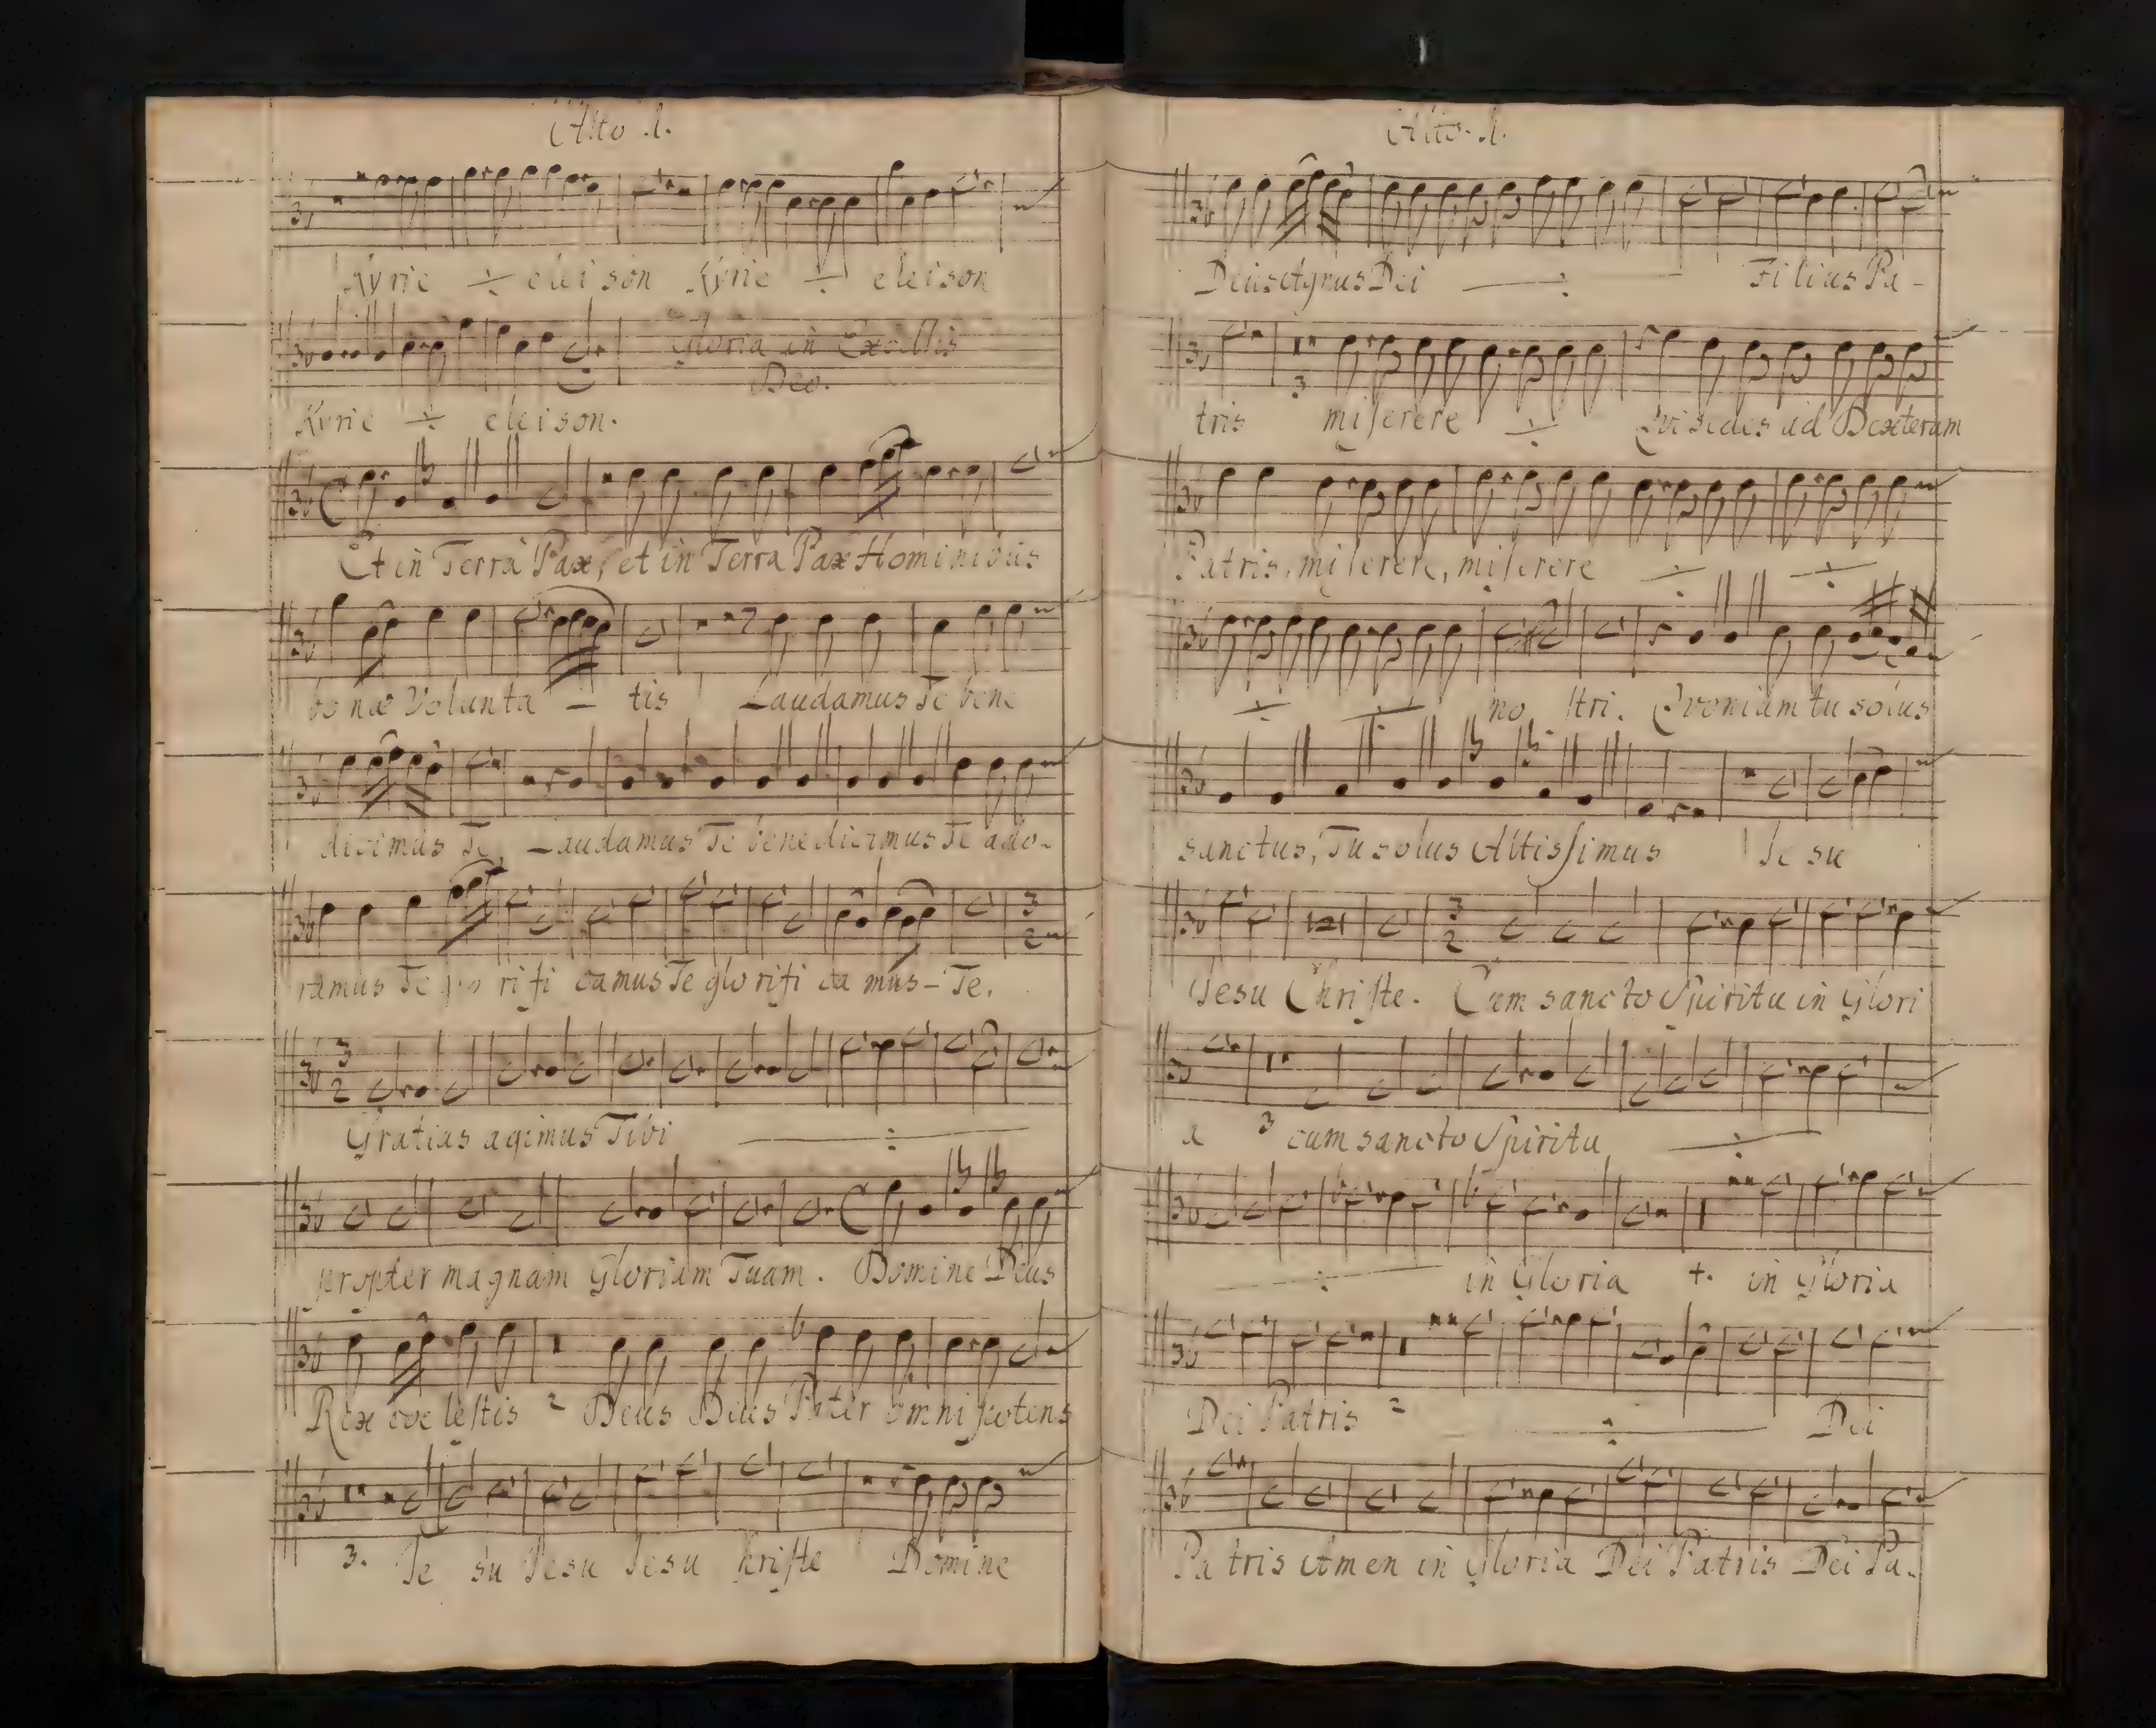 Alto .1.
Kyrie ÷ eleison Kyrie ÷ eleison
Gloria in Excelsis
Deo.
Kyrie ÷ eleison.
Et in Terra Pax, et in Terra Pax Hominibus
bonæ Volunta – tis Laudamus Te bene
dicimus Te, Laudamus Te benedicimus Te ado-
ramus Te glo rifi camus Te glorifi ca mus – Te.
3
2
3
2
Gratias agimus Tibi ÷
propter magnam Gloriam Tuam. Domine Deus
Rex coelestis 2 Deus Deus Pater omnipotens
3. Je su Jesu Jesu Christe Domine
Alto. 1.
Deus Agnus Dei ÷ Filius Pa-
3
tris miserere ÷ Qvi sedis ad Dexteram
Patris, miserere, miserere ÷ ÷
÷ ÷ no stri. Qvoniam tu solus
sanctus, Tu solus Altissimus Je su
3
2
Jesu Christe. Cum sancto Spiritu in Glori
a 3 cum sancto Spiritu ÷
÷ in Gloria +. in Gloria
Dei Patris 2 ÷ Dei
Patris Amen in Gloria Dei Patris Dei Pa-